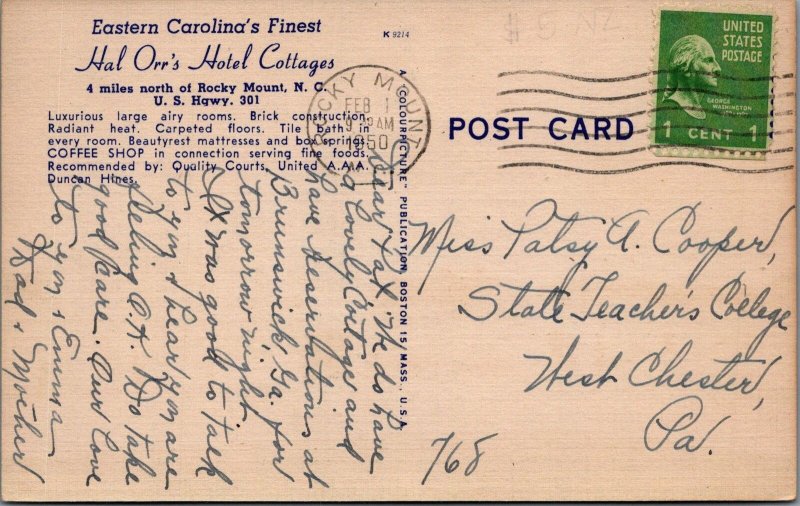 $ 5 NZ
Eastern Carolina's Finest
K 9214
Hal Orr's Hotel Cottages
4 miles north of Rocky Mount, N. C.
U. S. Hgwy. 301
Luxurious large airy rooms. Brick construction.
Radiant heat. Carpeted floors. Tile bath in
every room. Beautyrest mattresses and box springs.
COFFEE SHOP in connection serving fine foods.
Recommended by: Quality Courts, United A.A.A.
Duncan Hines.
ROCKY MOUNT
FEB 1
9 AM
1950
A "COLOURPICTURE" PUBLICATION, BOSTON 15, MASS., U.S.A.
POST CARD
UNITED
STATES
POSTAGE
GEORGE
WASHINGTON
1 CENT 1
Dear Pat, We do have
a lovely Cottage and
have reservations at
Brunswick, Ga. for
tomorrow night.
It was good to talk
to you & hear you are
feeling O.K. Do take
good care. Our Love
to you & Emma
Dad & Mother
Miss Patsy A. Cooper,
State Teacher's College
West Chester,
Pa.
768